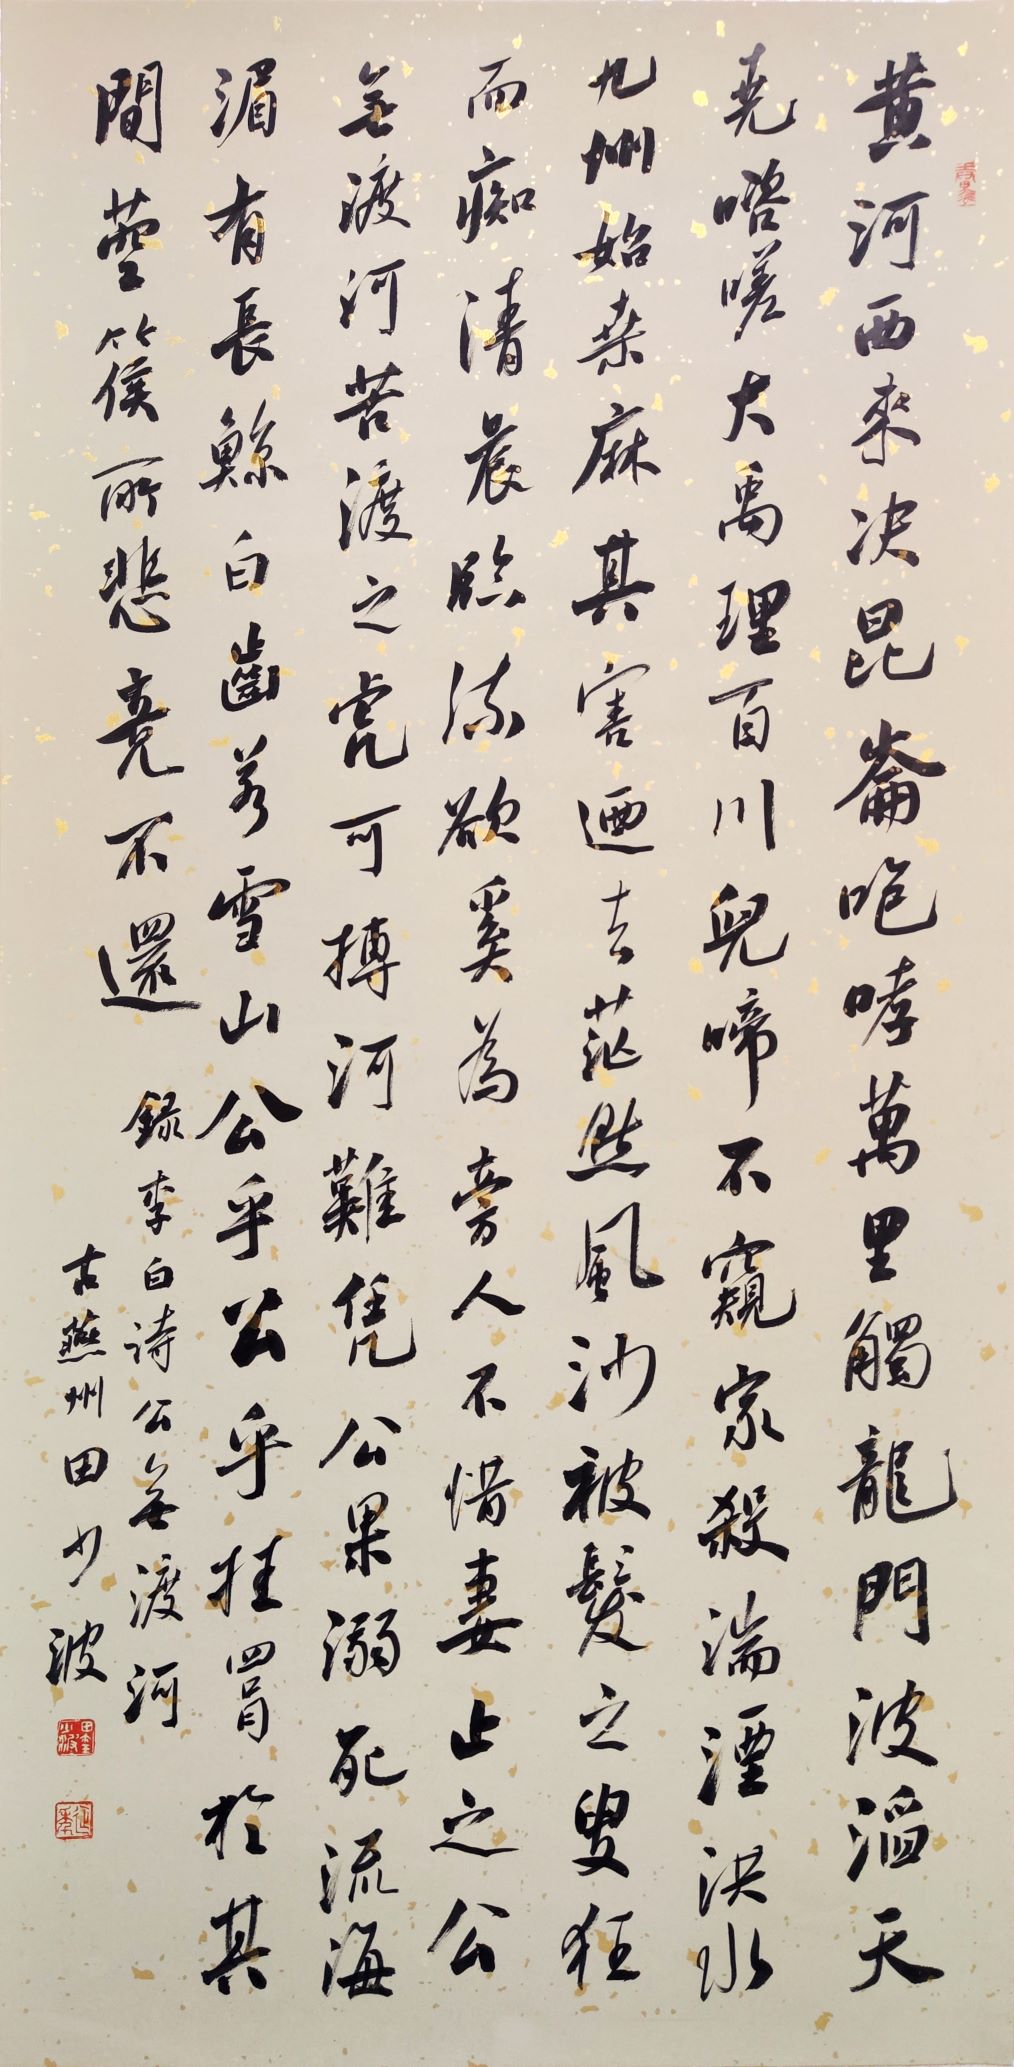 黄河西來決昆崙咆哮萬里觸龍門波滔天
堯嗟大禹理百川兒啼不窺家殺湍湮洪水
九州始桒麻其害迺去茫然風沙被髮之叟狂
而痴清晨臨流欲奚為旁人不惜妻止之公
無渡河苦渡之虎可搏河難凭公果溺死流海
湄有長鯨白齒若雪山公乎公乎挂罥於其
間箜篌所悲竟不還
錄李白詩公無渡河
古燕州田少波